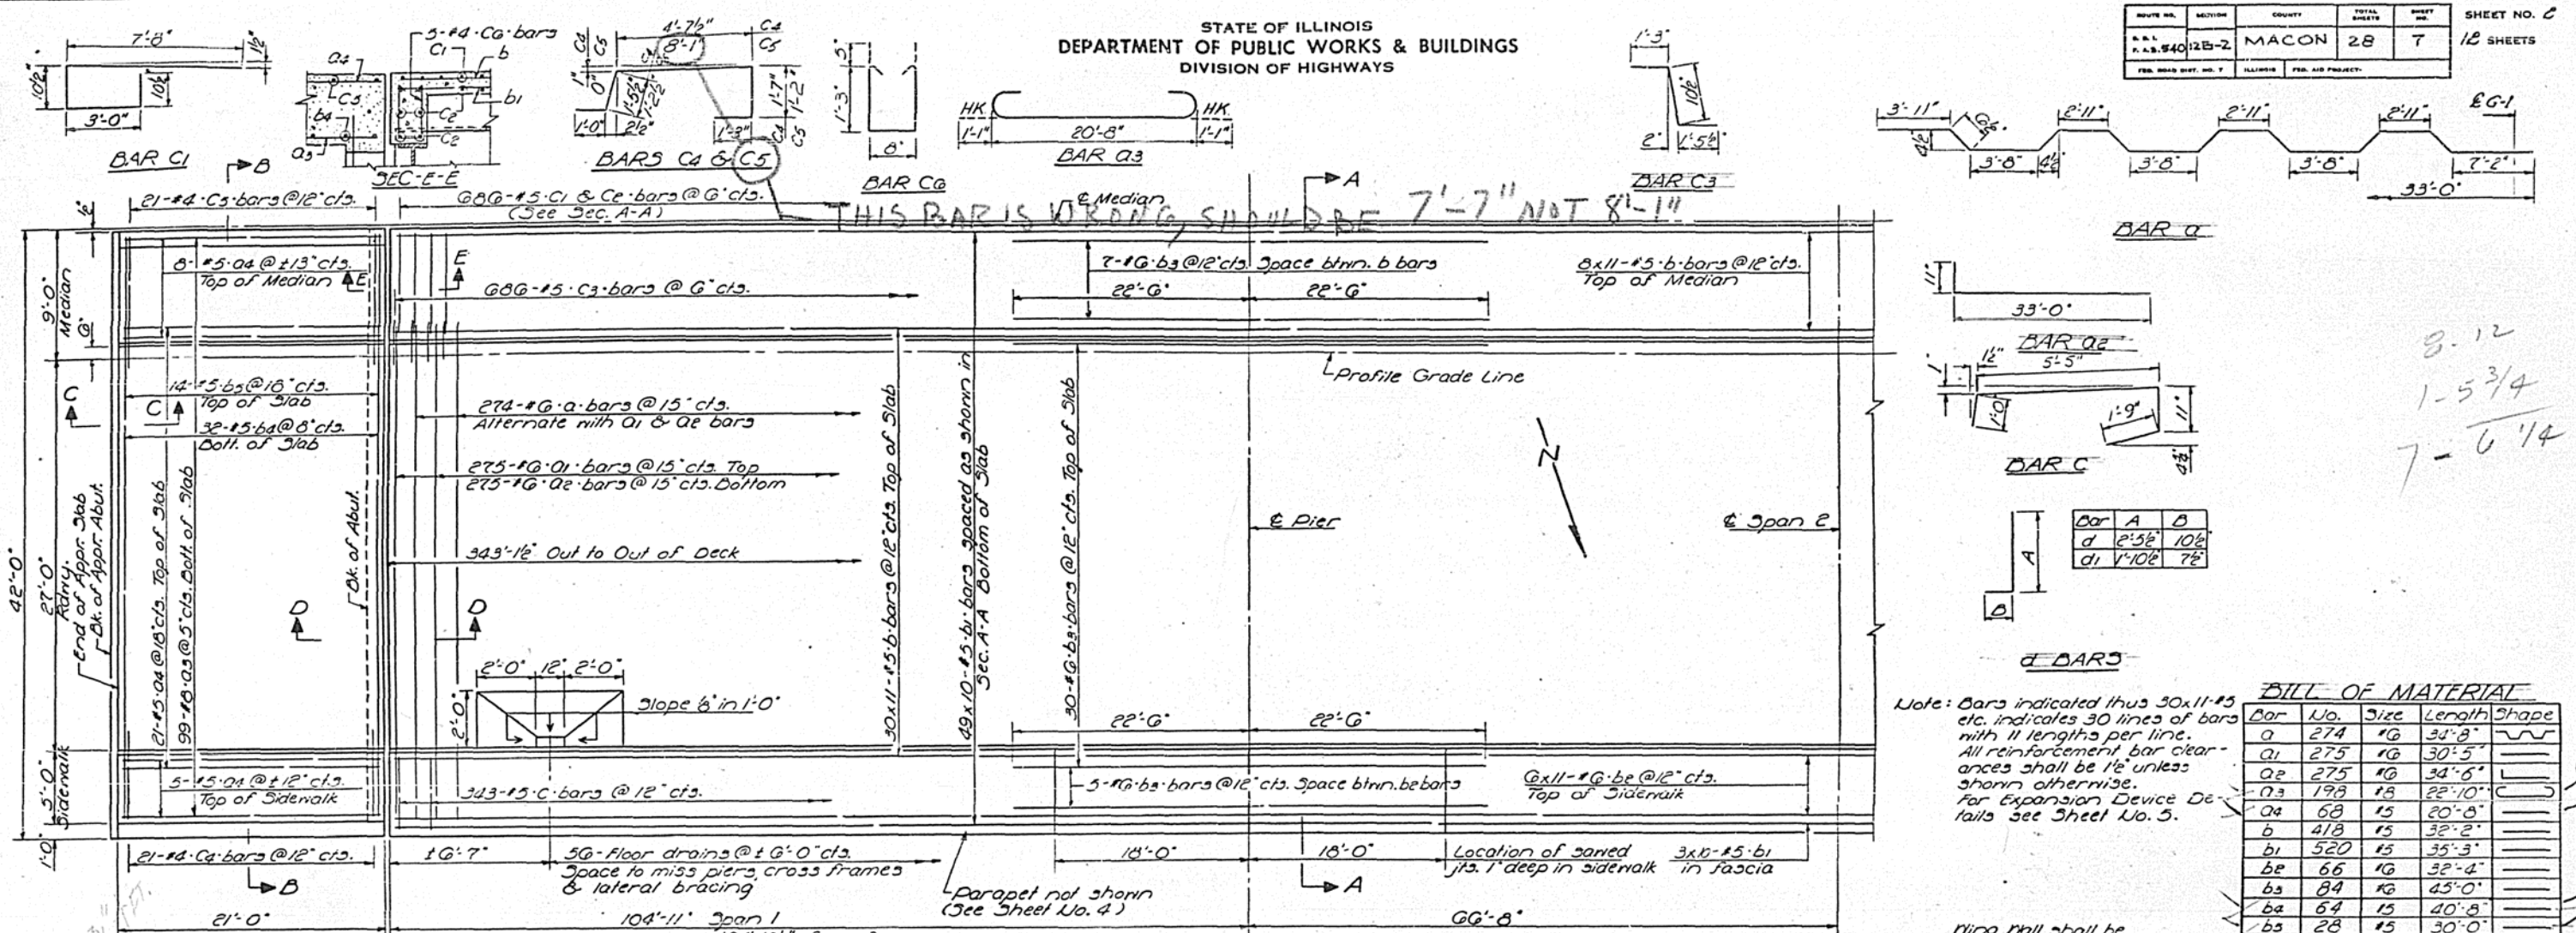 STATE OF ILLINOIS
DEPARTMENT OF PUBLIC WORKS & BUILDINGS
DIVISION OF HIGHWAYS
ROUTE NO. SECTION COUNTY TOTAL SHEETS SHEET NO.
F.A.S. 540 12B-2 MACON 28 7
FED. ROAD DIST. NO. 7 ILLINOIS FED. AID PROJECT-
SHEET NO. 2
12 SHEETS
7'-8"
1½"
10½"
10½"
3'-0"
BAR C1
5-#4·C6·bars
a4
C1
b
C5
b1
b4
C2
a3
C2
SEC-E-E
4'-7½"
8'-1"
C4
C5
C4
C5
1"
0"
1'-5½"
1'-2½"
1'-7"
1'-2"
1'-0"
2½"
1'-3"
C4
C5
BARS C4 & C5
5"
1'-3"
8"
BAR C6
HK
HK
1'-1"
20'-8"
1'-1"
BAR a3
1'-3"
10½"
2"
1'-5½"
BAR C3
3'-11"
2'-11"
2'-11"
2'-11"
℄ G-1
6⅜"
4½"
3'-8"
4½"
3'-8"
3'-8"
7'-2"
33'-0"
BAR a
11"
33'-0"
BAR a2
1½"
5'-5"
1"
1'-0"
1'-9"
11"
4½"
BAR C
8-12
1-5 3/4
7-6 1/4
Bar A B
d 2'-5½" 10½"
d1 1'-10½" 7½"
A
B
d BARS
THIS BAR IS WRONG, SHOULD BE 7'-7" NOT 8'-1"
B
21-#4·C5·bars@12"cts.
686-#5·C1 & C2·bars@6"cts.
(See Sec. A-A)
℄ Median
A
½"
9'-0"
Median
6"
8-#5·a4@±13"cts.
Top of Median
E
E
686-#5·C3·bars @ 6"cts.
7-#6·b3@12"cts. Space btwn. b bars
22'-6"
22'-6"
8x11-#5·b·bars@12"cts.
Top of Median
Profile Grade Line
C
C
14-#5·b5@18"cts.
Top of Slab
32-#5·b4@8"cts.
Bott. of Slab
274-#6·a·bars@15"cts.
Alternate with a1 & a2 bars
275-#6·a1·bars@15"cts. Top
275-#6·a2·bars@15"cts. Bottom
343'-1½" Out to Out of Deck
42'-0"
27'-0"
Rdwy.
End of Appr. Slab
Bk. of Appr. Abut.
21-#5·a4@18"cts. Top of Slab
99-#8·a3@5"cts. Bott. of Slab
Bk. of Abut.
D
D
30x11-#5·b·bars@12"cts. Top of Slab
49x10-#5·b1·bars spaced as shown in
Sec. A-A Bottom of Slab
30-#6·b3·bars@12"cts. Top of Slab
℄ Pier
N
℄ Span 2
2'-0"
12"
2'-0"
2'-0"
Slope ⅛" in 1'-0"
5'-0"
Sidewalk
1'-0"
5-#5·a4@±12"cts.
Top of Sidewalk
343-#5·C·bars @ 12"cts.
22'-6"
22'-6"
5-#6·b3·bars@12"cts. Space btwn. b2 bars
6x11-#6·b2@12"cts.
Top of Sidewalk
21-#4·C4·bars@12"cts.
B
±6'-7"
56-Floor drains@±6'-0"cts.
Space to miss piers, cross frames
& lateral bracing
Parapet not shown
(See Sheet No. 4)
18'-0"
18'-0"
A
Location of sawed
jts. 1" deep in sidewalk
3x10-#5·b1
in fascia
21'-0"
104'-11" Span 1
66'-8"
Note: Bars indicated thus 30x11-#5
etc. indicates 30 lines of bars
with 11 lengths per line.
All reinforcement bar clear-
ances shall be 1½" unless
shown otherwise.
For Expansion Device De-
tails see Sheet No. 5.
Wing Wall shall be
BILL OF MATERIAL
Bar No. Size Length Shape
a 274 #6 34'-8"
a1 275 #6 30'-5"
a2 275 #6 34'-6"
a3 198 #8 22'-10"
a4 68 #5 20'-8"
b 418 #5 32'-2"
b1 520 #5 35'-3"
b2 66 #6 32'-4"
b3 84 #6 45'-0"
b4 64 #5 40'-8"
b5 28 #5 30'-0"